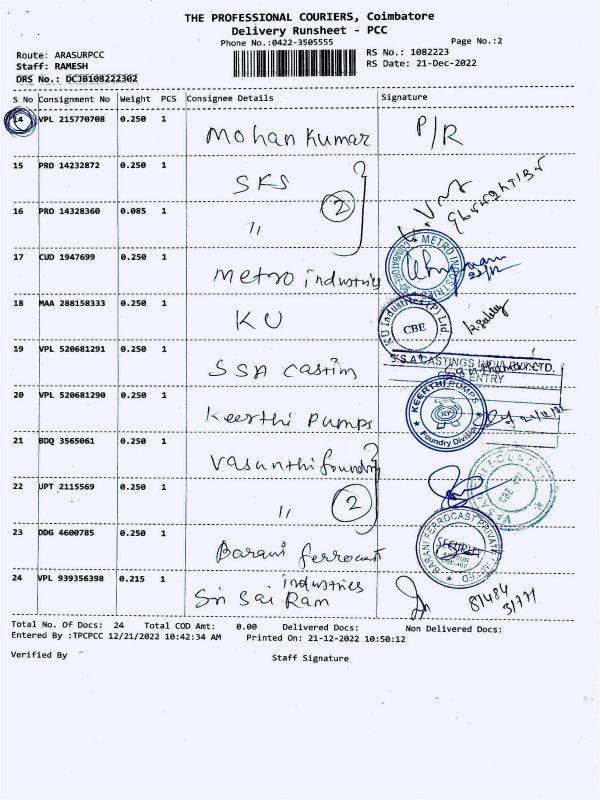 THE PROFESSIONAL COURIERS, Coimbatore
Delivery Runsheet - PCC
Phone No.:0422-3505555
Page No.:2
Route: ARASURPCC
RS No.: 1082223
Staff: RAMESH
RS Date: 21-Dec-2022
DRS No.: DCJB108222302
S No Consignment No Weight PCS Consignee Details Signature
14 VPL 215770708 0.250 1 Mohan Kumar P/R
15 PRO 14232872 0.250 1 SKS
16 PRO 14328360 0.085 1 " 2
17 CUD 1947699 0.250 1 Metro industries
METRO INDUSTRIES
COIMBATORE
18 MAA 288158333 0.250 1 KU
KU Industries (P) Ltd.
CBE
19 VPL 520681291 0.250 1 SSA Castin
S.S.A.CASTINGS INDIA PVT.LTD.
ENTRY
20 VPL 520681290 0.250 1 Keerthi Pumps
KEERTHI PUMPS
Foundry Division
21 BDQ 3565061 0.250 1 Vasunthi foundry
22 UPT 2115569 0.250 1 " 2
23 DDG 4600785 0.250 1 Barani ferrocast
BARANI FERROCAST PRIVATE LIMITED
SECURITY
24 VPL 939356398 0.215 1 Sri Sai Ram industries
Total No. Of Docs: 24 Total COD Amt: 0.00 Delivered Docs: Non Delivered Docs:
Entered By :TPCPCC 12/21/2022 10:42:34 AM Printed On: 21-12-2022 10:50:12
Verified By Staff Signature